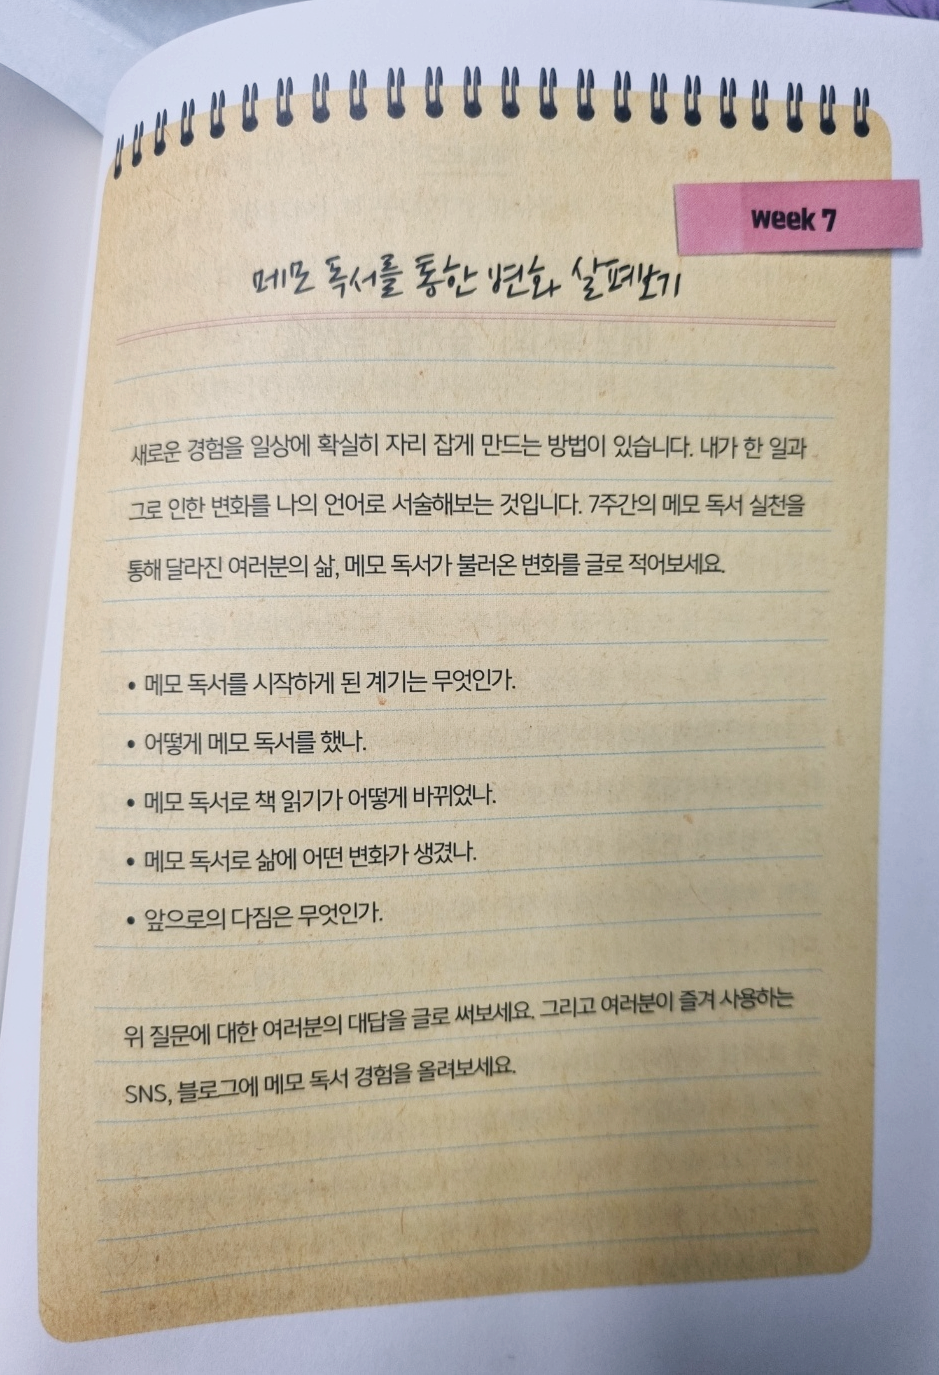 week 7
메모 독서를 통한 변화 살펴보기
새로운 경험을 일상에 확실히 자리 잡게 만드는 방법이 있습니다. 내가 한 일과
그로 인한 변화를 나의 언어로 서술해보는 것입니다. 7주간의 메모 독서 실천을
통해 달라진 여러분의 삶, 메모 독서가 불러온 변화를 글로 적어보세요.
• 메모 독서를 시작하게 된 계기는 무엇인가.
• 어떻게 메모 독서를 했나.
• 메모 독서로 책 읽기가 어떻게 바뀌었나.
• 메모 독서로 삶에 어떤 변화가 생겼나.
• 앞으로의 다짐은 무엇인가.
위 질문에 대한 여러분의 대답을 글로 써보세요. 그리고 여러분이 즐겨 사용하는
SNS, 블로그에 메모 독서 경험을 올려보세요.